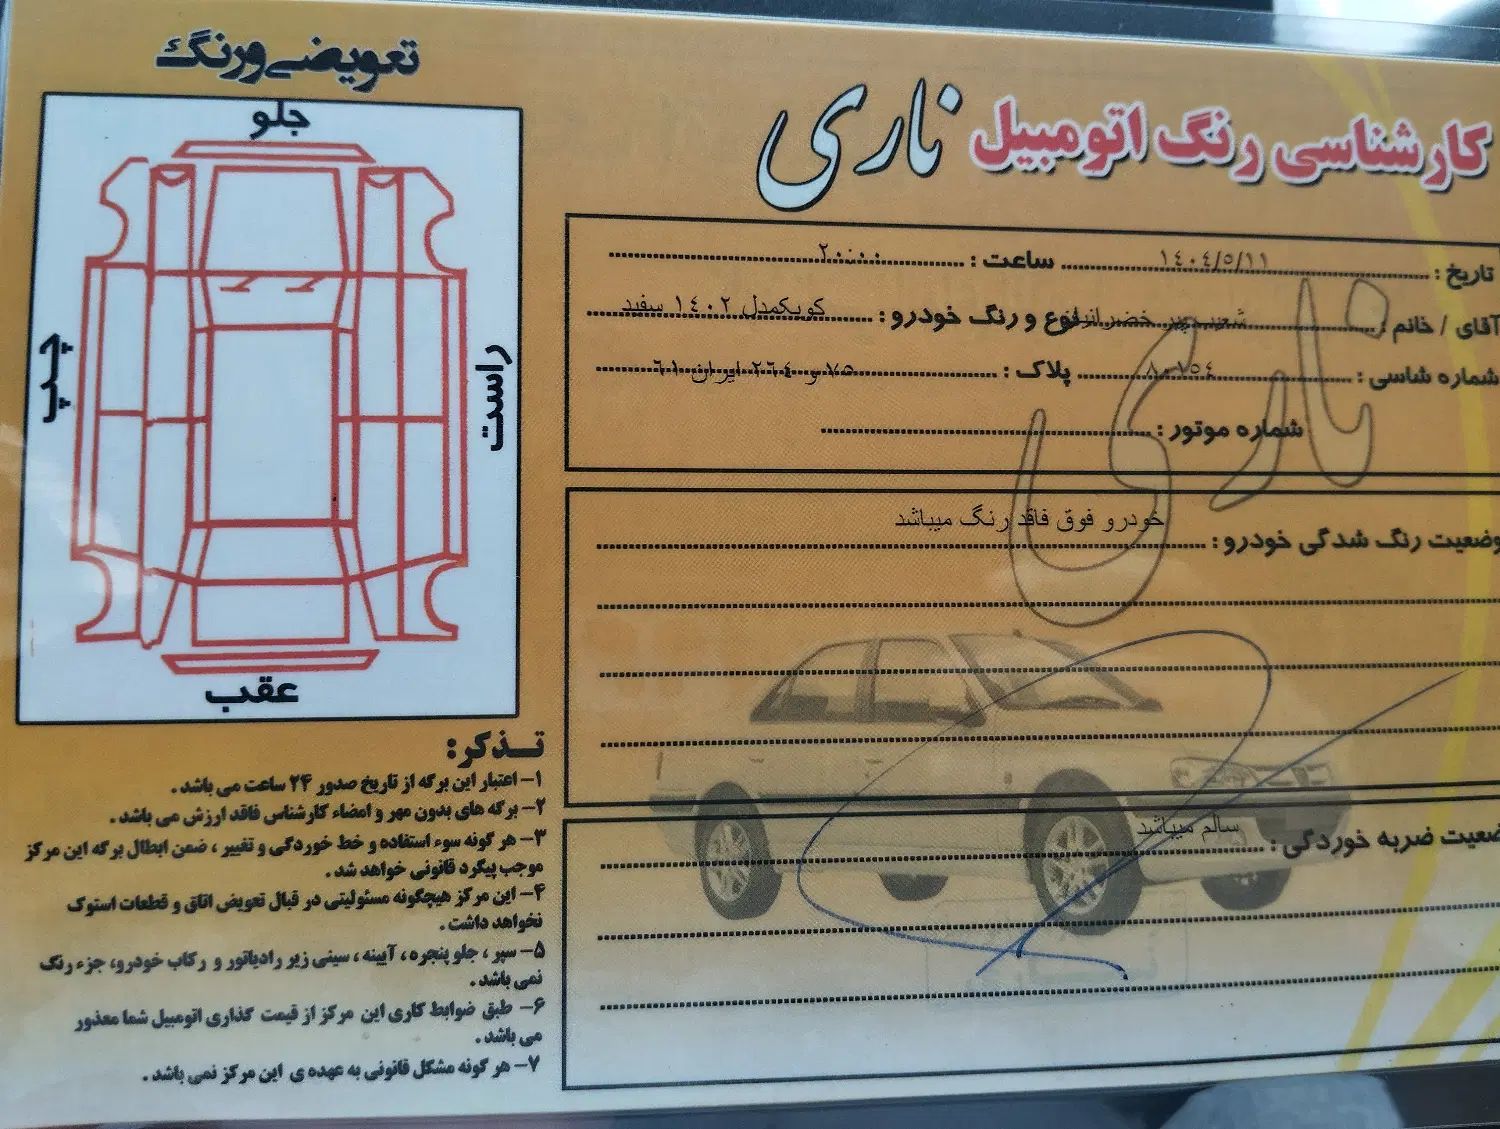 کارشناسی رنگ اتومبیل ناری
تاریخ : ۱۴۰۴/۵/۱۱ ساعت : ۲۰:۰۰
آقای / خانم : نوع و رنگ خودرو : کوییکمدل ۱۴۰۲ سفید
شماره شاسی : ۸۰۷۵٤ پلاک : ۷۵ و ۲٦٤ ایران ٦۱
شماره موتور :
وضعیت رنگ شدگی خودرو : خودرو فوق فاقد رنگ میباشد
ضعیت ضربه خوردگی : سالم میباشد
ناری
تعویضی و رنگ
جلو
چپ
راست
عقب
تـذکر:
۱- اعتبار این برگه از تاریخ صدور ۲۴ ساعت می باشد .
۲- برگه های بدون مهر و امضاء کارشناس فاقد ارزش می باشد .
۳- هر گونه سوء استفاده و خط خوردگی و تغییر ، ضمن ابطال برگه این مرکز
موجب پیگرد قانونی خواهد شد .
۴- این مرکز هیچگونه مسئولیتی در قبال تعویض اتاق و قطعات استوک
نخواهد داشت .
۵- سپر ، جلو پنجره ، آیینه ، سینی زیر رادیاتور و رکاب خودرو، جزء رنگ
نمی باشد .
۶- طبق ضوابط کاری این مرکز از قیمت گذاری اتومبیل شما معذور
می باشد .
۷- هر گونه مشکل قانونی به عهده ی این مرکز نمی باشد .